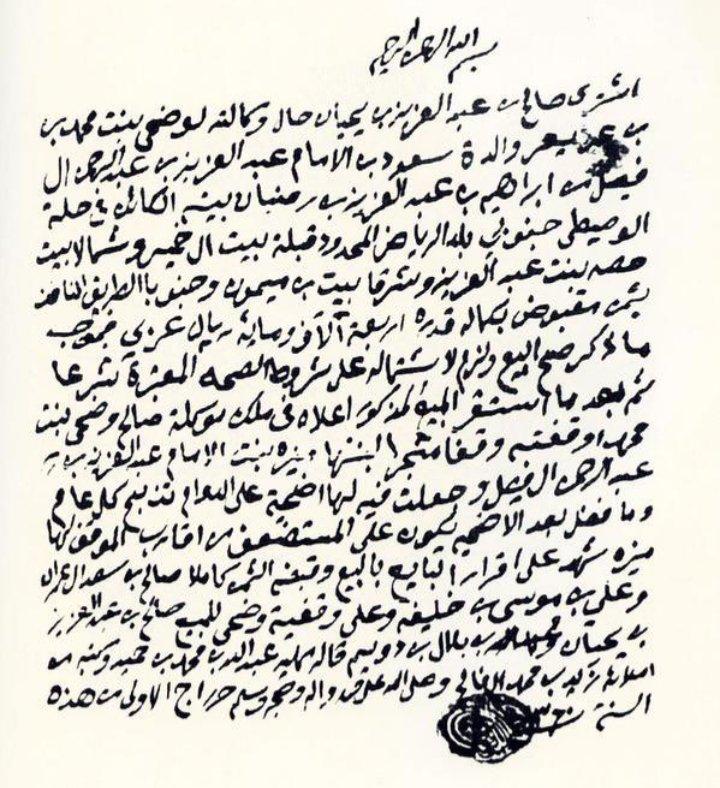 بسم الله الرحمن الرحيم
اشترى صالح بن عبد العزيز بن يحيان حال وكالته لوضحى بنت محمد بن
بن عريعر والدة سعود بن الامام عبد العزيز بن عبد الرحمن ال
فيصل من ابراهيم بن عبد العزيز بن رمنبان بيته الكائن في حلة
الوصيطى جنوبي بلد الرياض المحدود قبلة بيت ال خميس وشمالا بيت
حصه بنت عبد العزيز وشرقا بيت بن ميمون وجنوبا الطريق النافذ
بثمن مقبوض بكماله قدره اربعة آلاف ومائة ريال عربي فبموجب
ما ذكر صح البيع ولزم لاشتماله على شروط الصحه المعتبرة شرعا
ثم بعد ما استقر البيت المذكور اعلاه في ملك موكلة صالح وضحى بنت
محمد اوقفته وقفا منجزا لبنتها ميزه بنت الامام عبد العزيز بن
عبد الرحمن ال فيصل وجعلت فيه لها اضحية على الدوام تذبح كل عام
وما فضل بعد الاضحيه يكون على المستضعف من اقارب الموقف لها
ميزه شهد على اقرار البايع بالبيع وقبضه الثمن كاملا صالح بن سعد ال
وعلي بن موسى بن خليفه وعلى وقفية وضحى للمبيع صالح بن عبد العزيز
بن يحيان بن بلال بن دويم قاله مملیه عبد الله بن محمد بن حميد وكتبه من
املائه زيد بن محمد وصلى الله على محمد واله وصحبه وسلم حرر ج الاولى من هذه
السنة